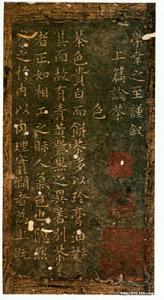 榮幸之至謹叙
上篇論茶
色
茶色貴白而餅茶多以珍膏油其
面故有青黃紫黑之異善别茶
者正如相工之眎人氣色也隱然
察之於内以肉理實潤者為上既